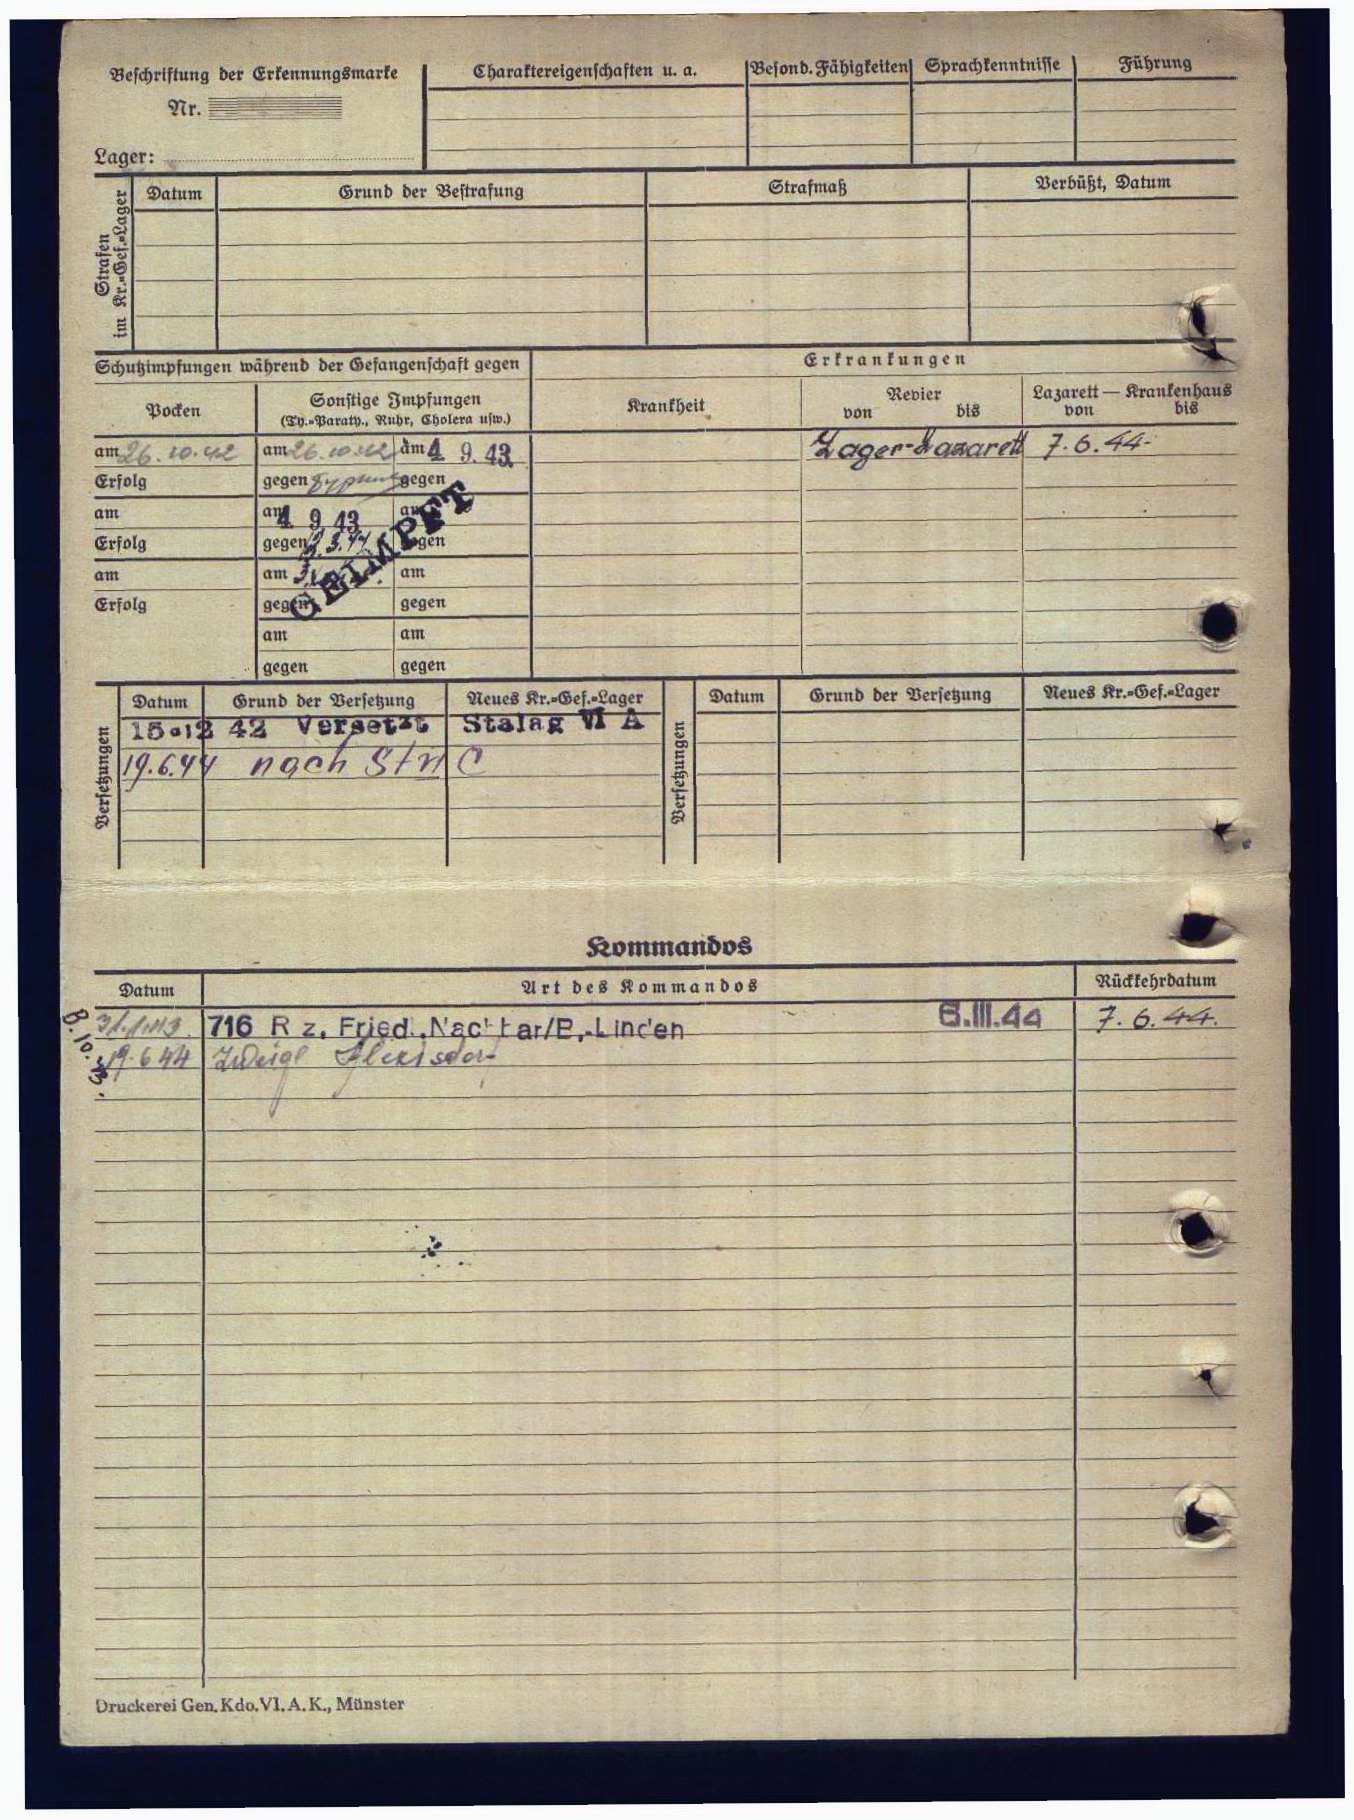 Beschriftung der Erkennungsmarke
Nr.
Lager:
Charaktereigenschaften u. a.
Besond. Fähigkeiten
Sprachkenntnisse
Führung
Strafen im Kr.=Gef.=Lager
Datum
Grund der Bestrafung
Strafmaß
Verbüßt, Datum
Schutzimpfungen während der Gefangenschaft gegen
Erkrankungen
Pocken
Sonstige Impfungen
(Ty.=Paraty., Ruhr, Cholera usw.)
Krankheit
Revier
von bis
Lazarett — Krankenhaus
von bis
am 26.10.42 am 26.10.42 am 4 9. 43
Lager-Lazarett 7.6.44-
Erfolg gegen gegen
am am 4 9 43 am
Erfolg gegen 3.44 gegen
GEIMPFT
am am am
Erfolg gegen gegen
am am
gegen gegen
Versetzungen
Datum Grund der Versetzung Neues Kr.=Gef.=Lager
15.12 42 Versetzt Stalag VI A
19.6.44 nach St VI C
Versetzungen
Datum Grund der Versetzung Neues Kr.=Gef.=Lager
Kommandos
Datum Art des Kommandos Rückkehrdatum
8.10.43.
716 R z. Fried. 6.III.44 7.6.44.
19.6 44 Zweigl
Druckerei Gen. Kdo. VI. A. K., Münster